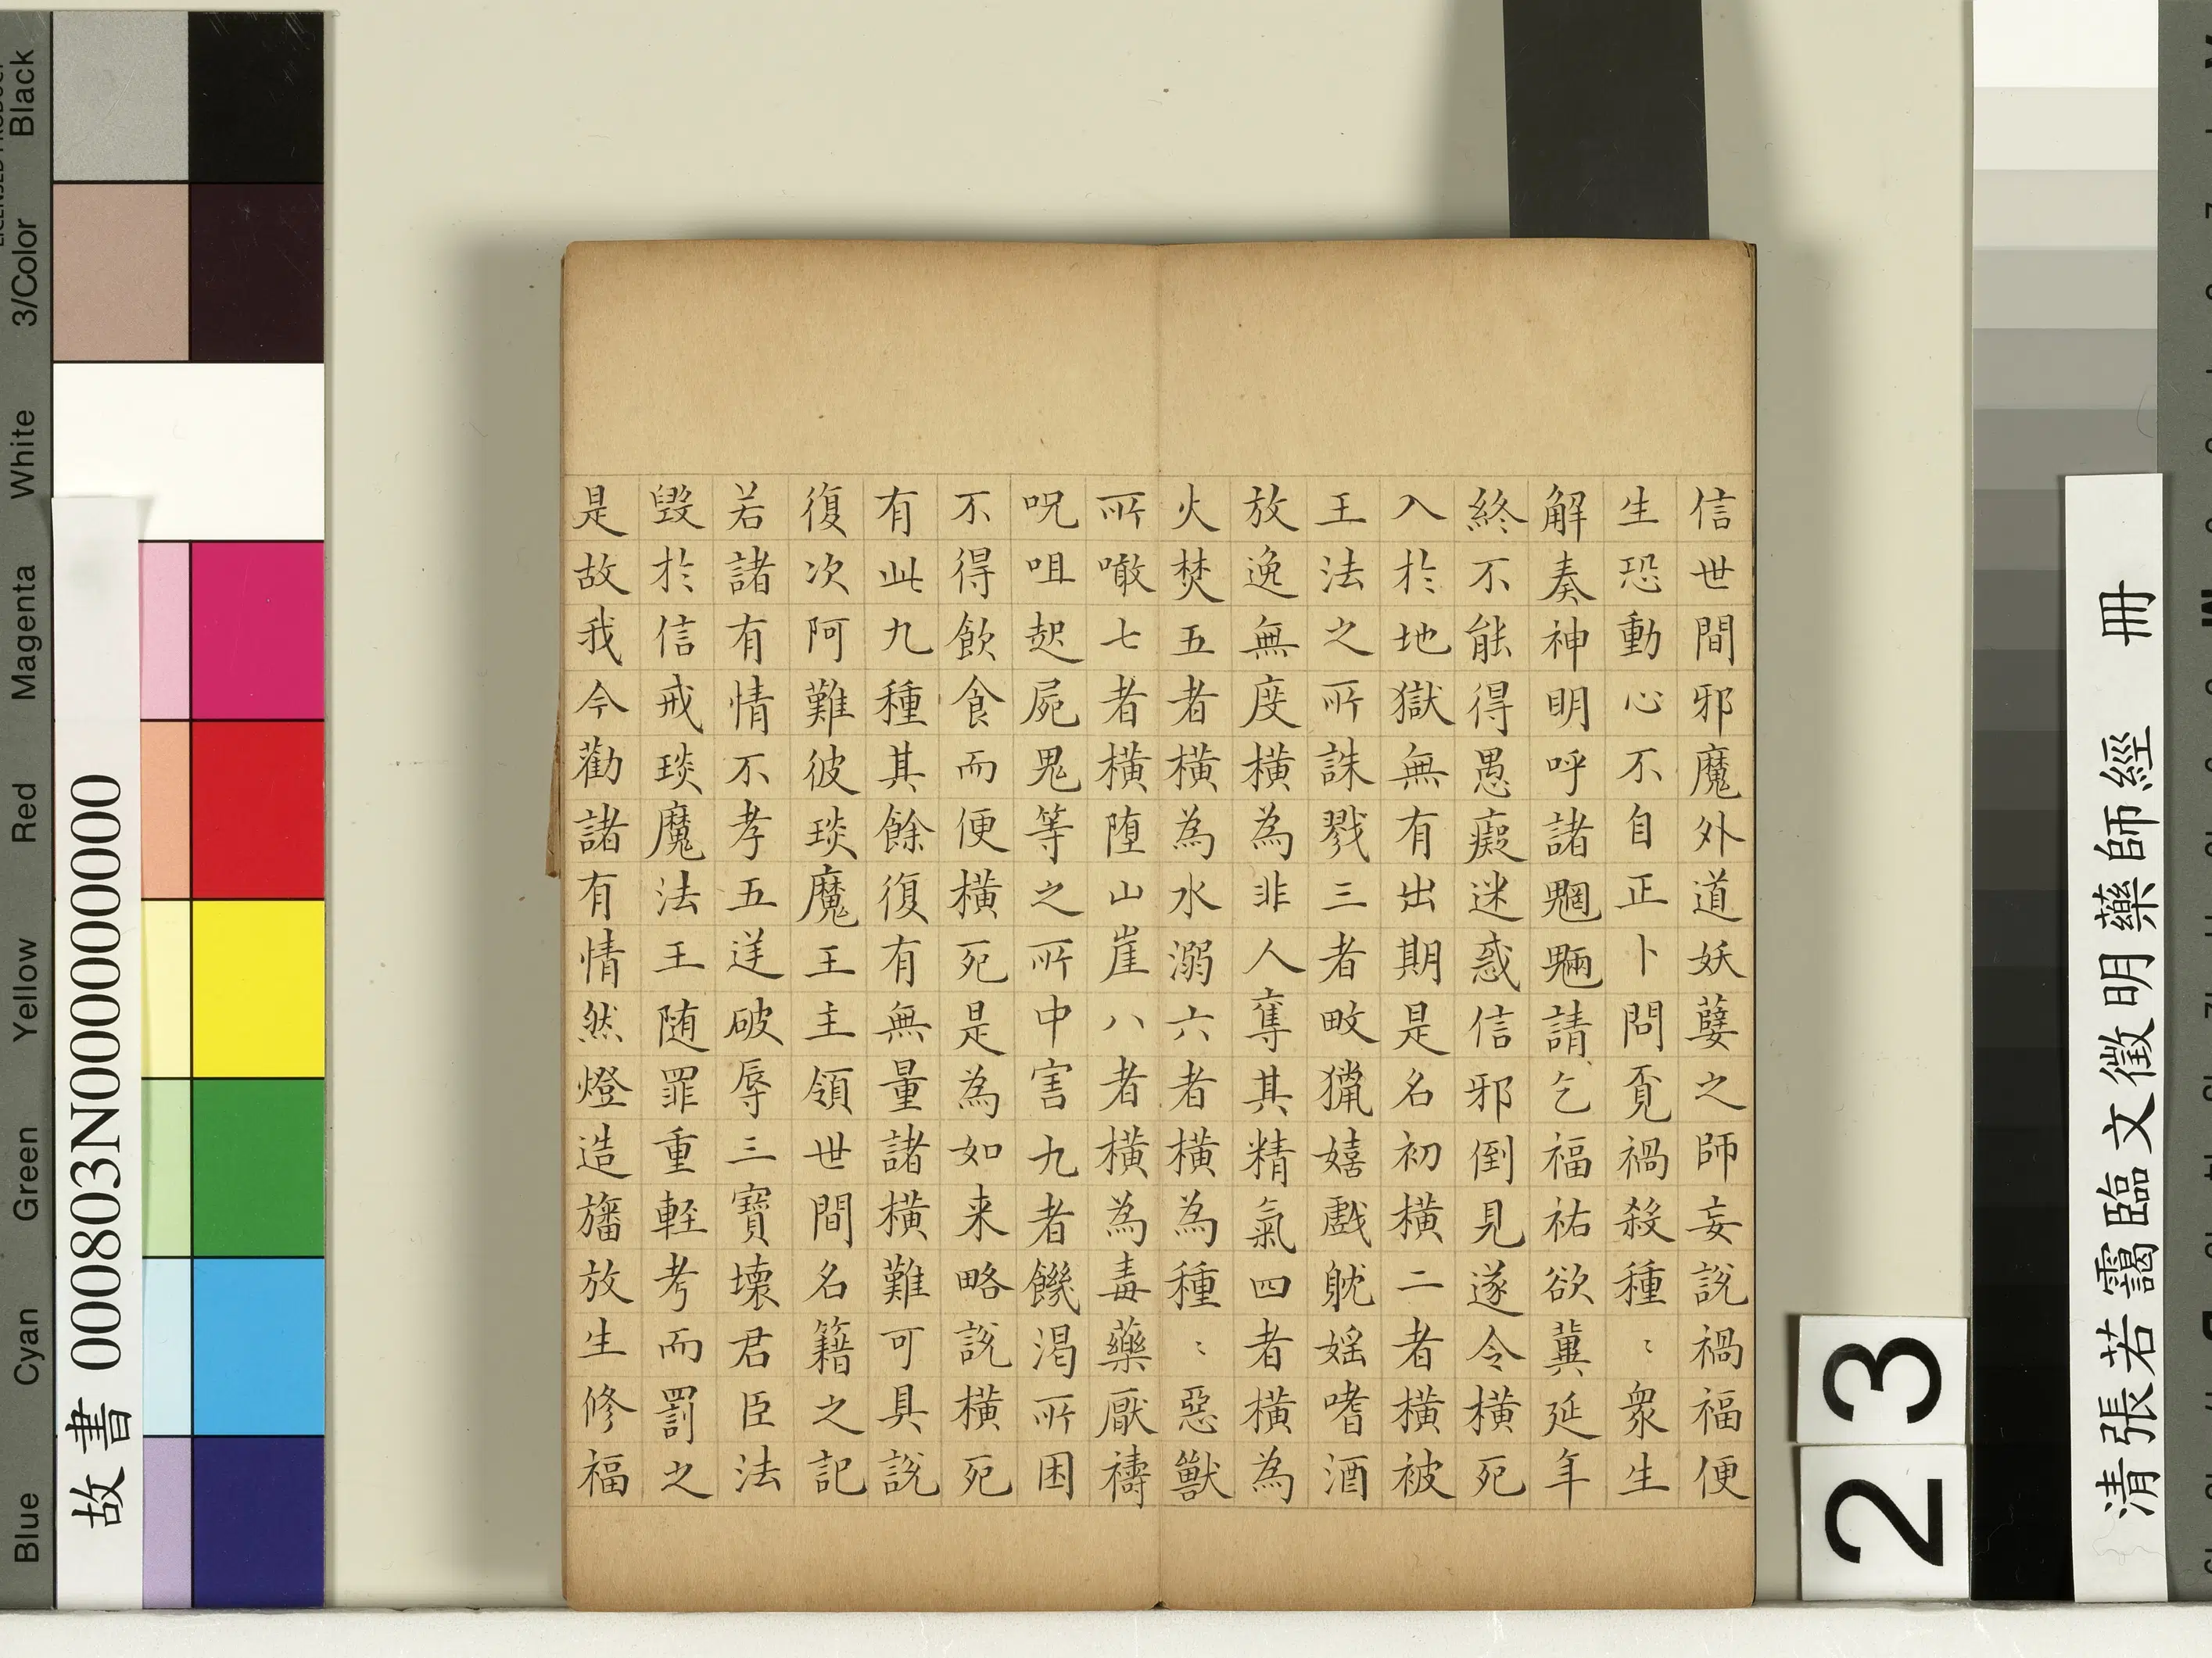 信世間邪魔外道妖孽之師妄説禍福便
生恐動心不自正卜問覓禍殺種〻衆生
解奏神明呼諸魍魎請乞福祐欲冀延年
終不能得愚癡迷惑信邪倒見遂令横死
入於地獄無有出期是名初横二者横被
王法之所誅戮三者畋獵嬉戲躭婬嗜酒
放逸無度横為非人奪其精氣四者横為
火焚五者横為水溺六者横為種〻惡獸
所噉七者横堕山崖八者横為毒藥厭禱
呪咀起屍鬼等之所中害九者饑渴所困
不得飲食而便横死是為如来略説横死
有此九種其餘復有無量諸横難可具説
復次阿難彼琰魔王主領世間名籍之記
若諸有情不孝五逆破辱三寶壞君臣法
毀於信戒琰魔法王随罪重軽考而罰之
是故我今勸諸有情然燈造旛放生修福
清張若靄臨文徵明藥師經 冊
23
故書 000803N000000000
Black
3/Color
White
Magenta
Red
Yellow
Green
Cyan
Blue